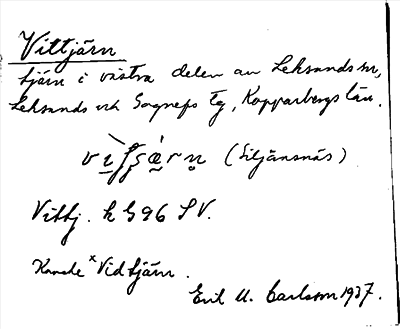 Vittjärn
tjärn i västra delen av Leksands sn,
Leksands och Gagnefs tg, Kopparbergs län.
(Siljansnäs)
Vittj. k G 96 SV.
Kanske *Vidtjärn.
Erik U. Carlsson 1937.